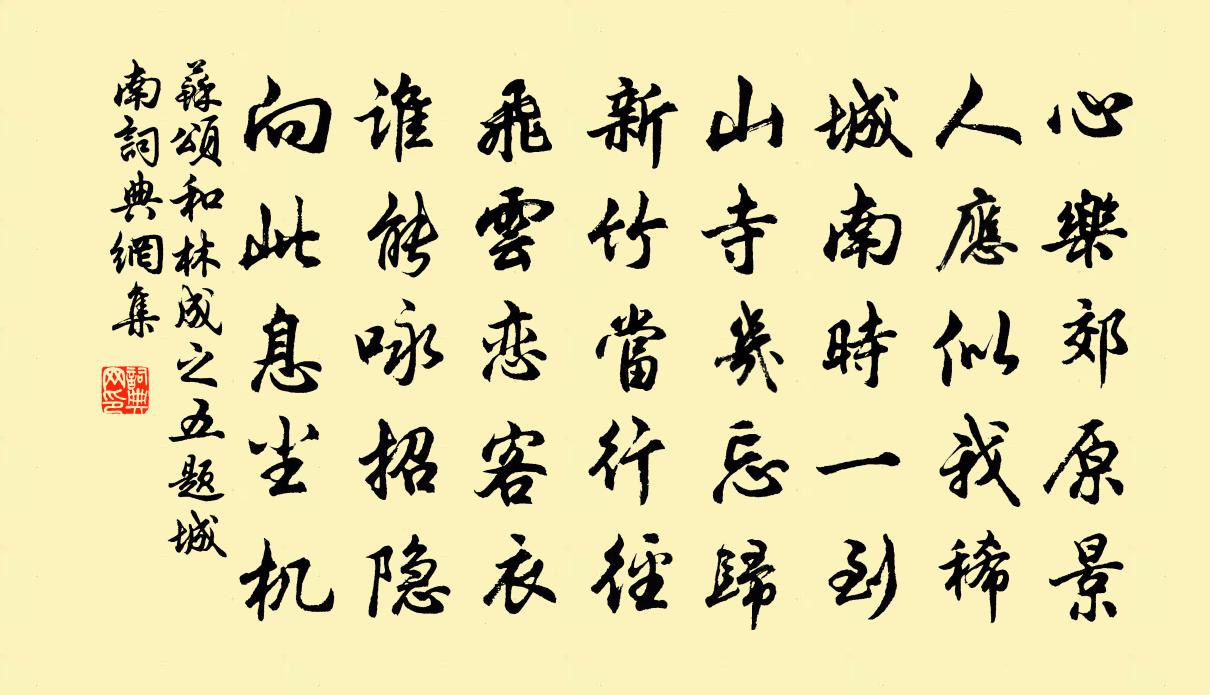 心樂郊原景
人應似我稀
城南時一到
山寺幾忘歸
新竹當行徑
飛雲恋客衣
谁能咏招隐
向此息尘机
蘇頌和林成之五题城
南詞典網集
詞典
网印